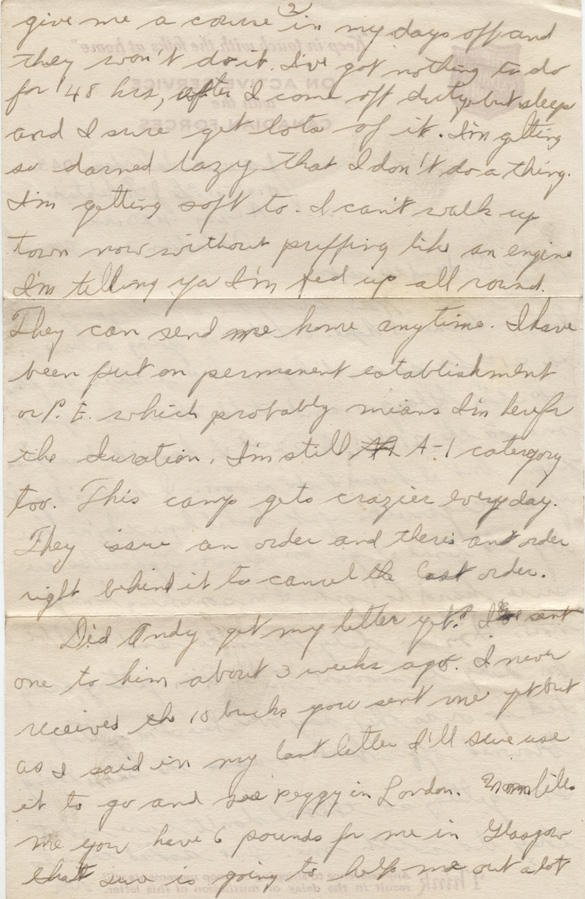 2
give me a course in my days off and
they won't do it. I've got nothing to do
for 48 hrs, after I come off duty but sleep
and I sure get lots of it. I'm getting
so darned lazy that I don't do a thing.
I'm getting soft to. I can't walk up
town now without puffing like an engine
I'm telling ya I'm fed up all round.
They can send me home anytime. I have
been put on permanent establishment
or P.E. which probably means I'm here for
the duration. I'm still A-1 catergory
too. This camp gets crazier everyday.
They issue an order and there's another order
right behind it to cancel the last order.
Did Andy get my letter yet? I sent
one to him about 3 weeks ago. I never
received the 10 bucks you sent me yet but
as I said in my last letter I'll sure use
it to go and see Peggy in London. Mom tells
me you have 6 pounds for me in Glasgow
that sure is going to help me out a lot
"Keep in touch with the folks at home"
ON ACTIVE SERVICE
with the
CANADIAN FORCES
Think
result in the delay or mutilation of this letter.